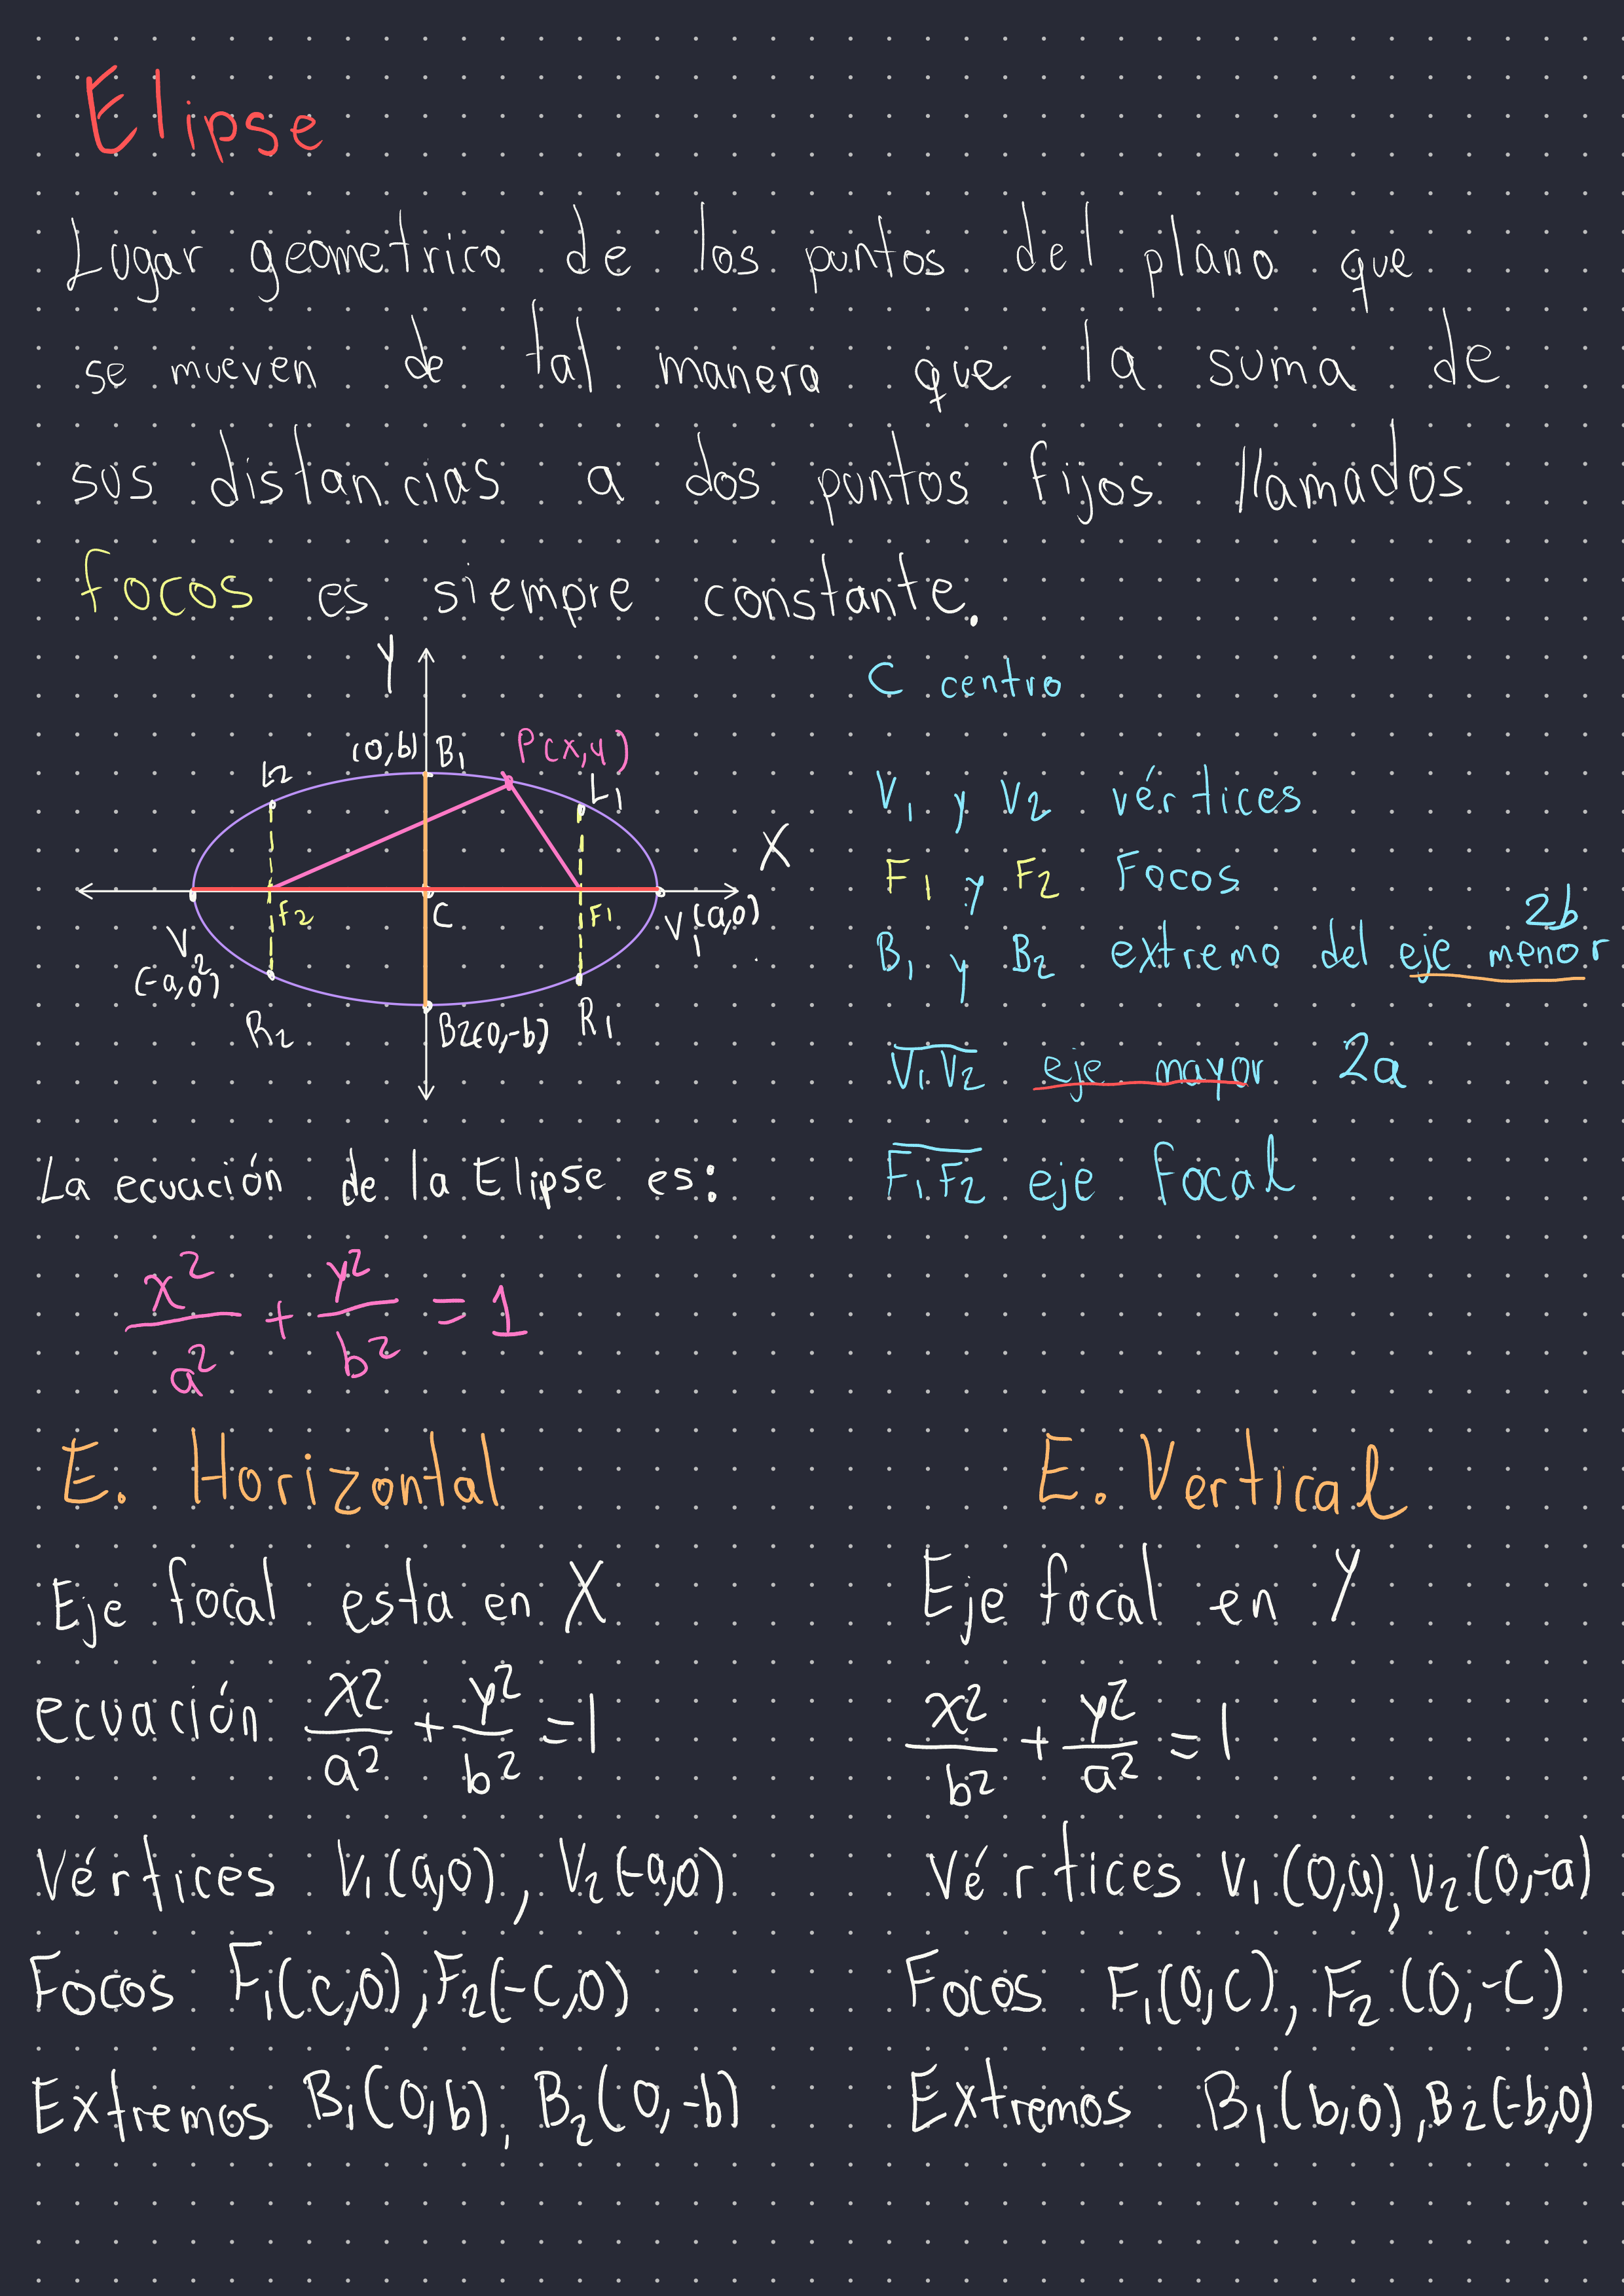 Elipse
Lugar geometrico de los puntos del plano que
se mueven de tal manera que la suma de
sus distancias a dos puntos fijos llamados
focos es siempre constante.
Y
(0,b) B1
P(x,y)
L2
L1
X
F2
C
F1
V1 (a,0)
V2
(-a,0)
R2
B2(0,-b)
R1
C centro
V1 y V2 vértices
F1 y F2 Focos
2b
B1 y B2 extremo del eje menor
V1V2 eje mayor 2a
F1F2 eje focal
La ecuación de la Elipse es:
x²/a² + y²/b² = 1
E. Horizontal
Eje focal esta en X
ecuación x²/a² + y²/b² = 1
Vértices V1(a,0), V2(-a,0)
Focos F1(c,0), F2(-c,0)
Extremos B1(0,b), B2(0,-b)
E. Vertical
Eje focal en Y
x²/b² + y²/a² = 1
Vértices V1(0,a), V2(0,-a)
Focos F1(0,c), F2(0,-c)
Extremos B1(b,0), B2(-b,0)